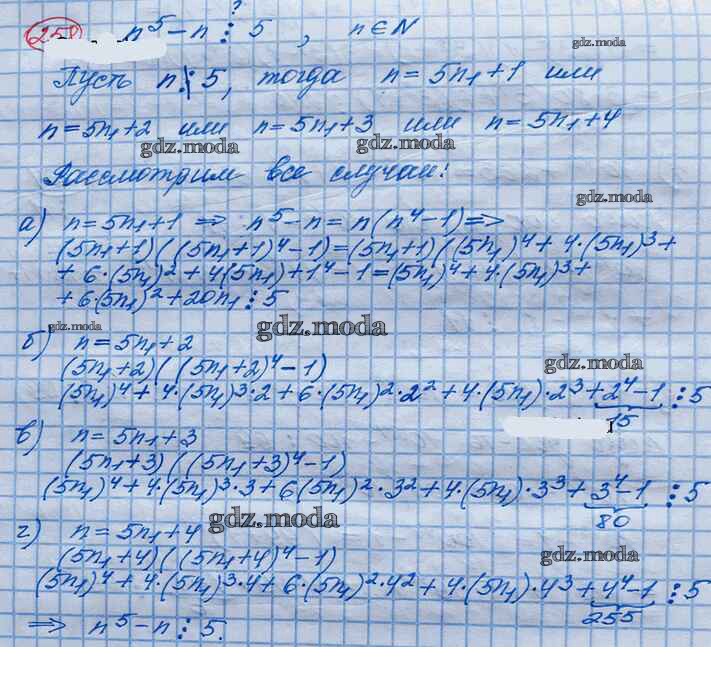 258 n⁵-n ⋮ 5, n∈N
?
gdz.moda
Пусть n ⋮̸ 5, тогда n=5n₁+1 или
n=5n₁+2 или n=5n₁+3 или n=5n₁+4
gdz.moda gdz.moda
Рассмотрим все случаи:
gdz.moda
а) n=5n₁+1 ⇒ n⁵-n=n(n⁴-1)⇒
(5n₁+1)((5n₁+1)⁴-1)=(5n₁+1)((5n₁)⁴+4·(5n₁)³+
+6·(5n₁)²+4(5n₁)+1⁴-1=(5n₁)⁴+4·(5n₁)³+
+6·(5n₁)²+20n₁ ⋮ 5
gdz.moda gdz.moda
б) n=5n₁+2
(5n₁+2)((5n₁+2)⁴-1)
gdz.moda
(5n₁)⁴+4·(5n₁)³·2+6·(5n₁)²·2²+4·(5n₁)·2³+2⁴-1 ⋮ 5
15
в) n=5n₁+3
(5n₁+3)((5n₁+3)⁴-1)
(5n₁)⁴+4·(5n₁)³·3+6(5n₁)²·3²+4·(5n₁)·3³+3⁴-1 ⋮ 5
80
gdz.moda
г) n=5n₁+4
(5n₁+4)((5n₁+4)⁴-1)
gdz.moda
(5n₁)⁴+4·(5n₁)³·4+6·(5n₁)²·4²+4·(5n₁)·4³+4⁴-1 ⋮ 5
255
⇒ n⁵-n ⋮ 5.